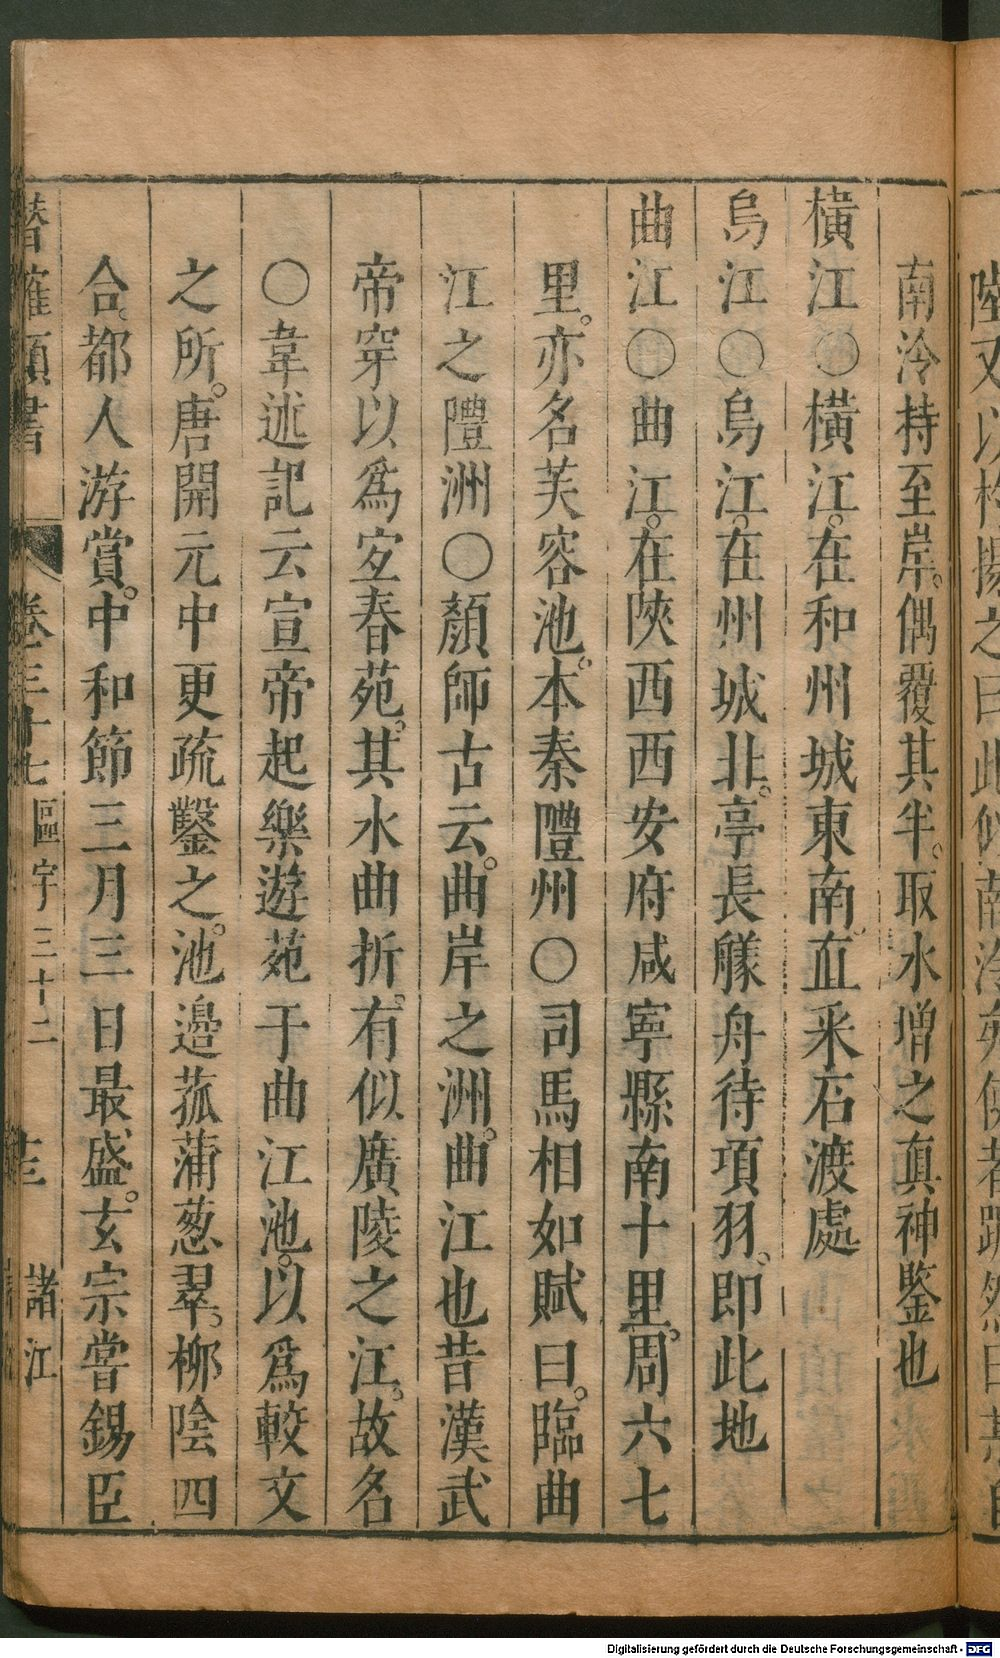 南泠持至岸。偶覆其半。取水增之真神鑒也
橫江○橫江。在和州城東南。直采石渡處
烏江○烏江。在州城北。亭長艤舟待項羽、即此地
曲江○曲江。在陝西西安府咸寧縣南十里。周六七
里。亦名芙容池。本秦隑州○司馬相如賦曰。臨曲
江之隑洲○顏師古云。曲岸之洲。曲江也昔漢武
帝穿以爲宜春苑。其水曲折。有似廣陵之江。故名
○韋述記云宣帝起樂遊苑于曲江池。以爲較文
之所。唐開元中更疏鑿之。池邉菰蒲葱翠。柳陰四
合。都人游賞。中和節三月三日最盛。玄宗嘗錫臣
卷三十七 區宇三十二 諸江
Digitalisierung gefördert durch die Deutsche Forschungsgemeinschaft - DFG